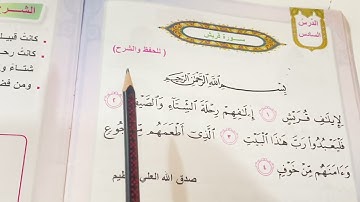 الدرس
السادس
سورة قريش
(للحفظ والشرح)
بِسْمِ اللَّهِ الرَّحْمَٰنِ الرَّحِيمِ
لِإِيلَٰفِ قُرَيْشٍ ١ إِۦلَٰفِهِمْ رِحْلَةَ الشِّتَاءِ وَالصَّيْفِ ٢
فَلْيَعْبُدُوا رَبَّ هَٰذَا الْبَيْتِ ٣ الَّذِي أَطْعَمَهُم مِّن جُوعٍ
وَءَامَنَهُم مِّنْ خَوْفٍ ٤
صدق الله العلي العظيم
كانت
شتاء
ومن